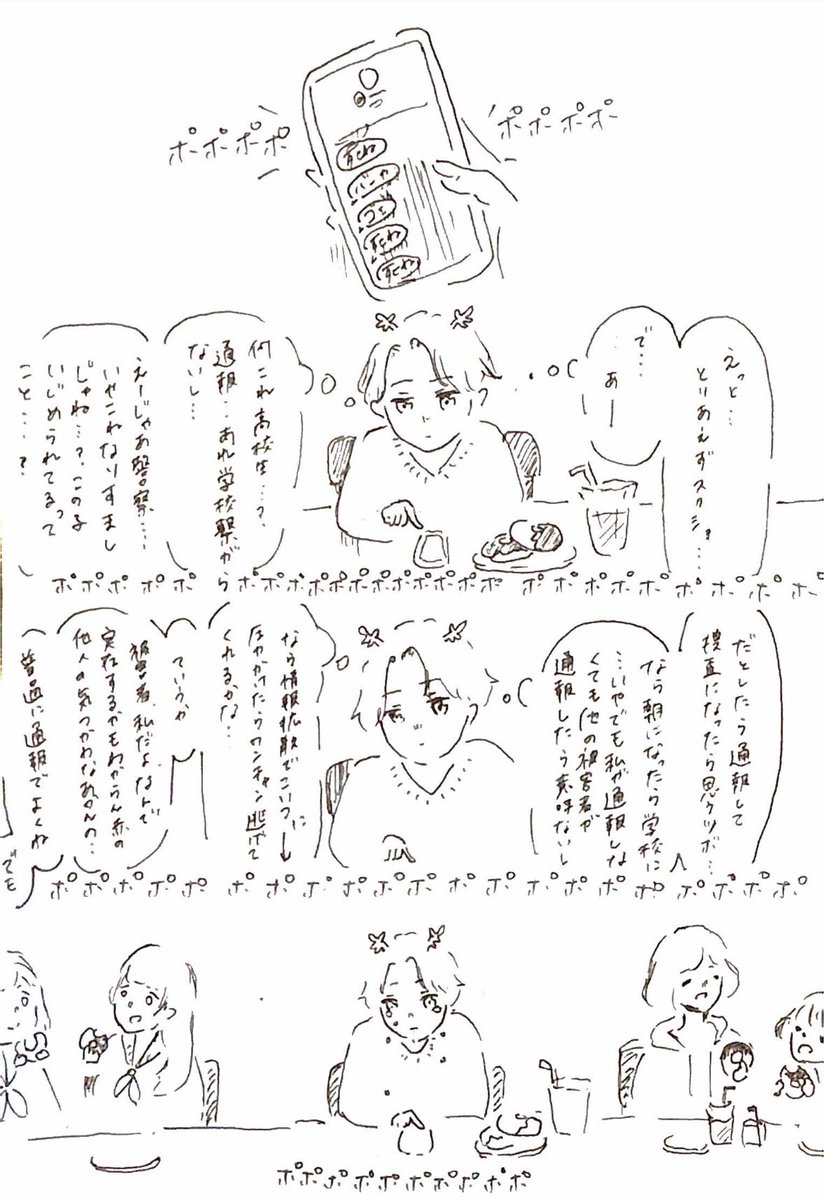 ポポポポ
ポポポポ
バーカ
えっと…
とりあえずスクショ…
で…
あー
何これ高校生…?
通報…あれ学校繋がら
ないし…
えーじゃあ警察…
いやこれなりすまし
じゃね…?、この子
いじめられてるって
こと…?
ポポポポポポポポポポポポポポポポポポポポポポポポポポポポポポ
だとしたら通報して
捜査になったら思うツボ…
なら朝になったら学校に
…いやでも私が通報しな
くても他の被害者が
通報したら意味ないし
なら情報拡散でこいつに
圧かけたらワンチャン逃げて
くれるかな…
ていうか
被害者、私だよなんで
実在するかもわからん赤の
他人の気つかわなあかんの…
普通に通報でよくね
でも
ポポポポポポポポポポポポポポポポポポポポポポポポポ
ポポポポポポポポポポ